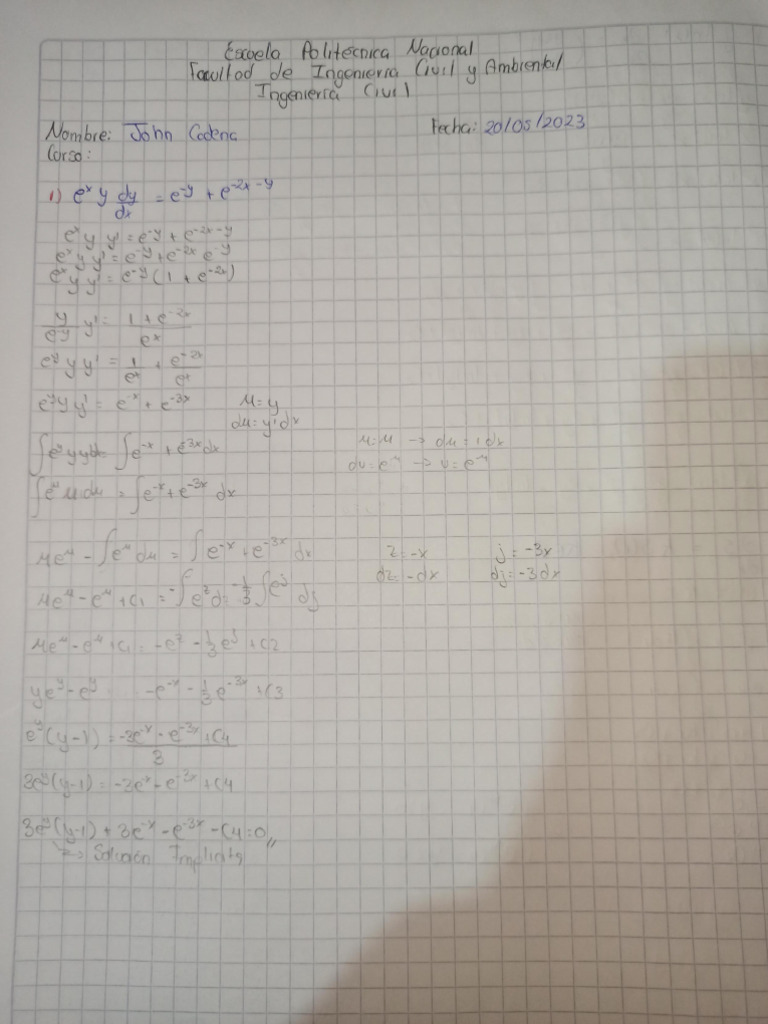 Escuela Politécnica Nacional
Facultad de Ingeniería Civil y Ambiental
Ingeniería Civil
Nombre: John Cadena Fecha: 20/05/2023
Curso:
1) e^x y dy/dx = e^-y + e^-2x-y
e^x y y' = e^-y + e^-2x-y
e^x y y' = e^-y + e^-2x e^-y
e^x y y' = e^-y (1 + e^-2x)
y/e^-y y' = 1 + e^-2x / e^x
e^y y y' = 1/e^x + e^-2x/e^x
e^y y y' = e^-x + e^-3x μ = y
dμ = y' dx
∫ e^y y y' dx = ∫ e^-x + e^-3x dx μ = μ -> dμ = 1 dx
dv = e^μ -> v = e^μ
∫ e^μ μ dμ = ∫ e^-x + e^-3x dx
μe^μ - ∫ e^μ dμ = ∫ e^-x + e^-3x dx z = -x j = -3x
dz = -dx dj = -3dx
μe^μ - e^μ + C1 = -∫ e^z dz -1/3 ∫ e^j dj
μe^μ - e^μ + C1 = -e^z - 1/3 e^j + C2
ye^y - e^y -e^-x - 1/3 e^-3x + C3
e^y (y-1) = -3e^-x - e^-3x + C4 / 3
3e^y (y-1) = -3e^-x - e^-3x + C4
3e^y (y-1) + 3e^-x - e^-3x - C4 = 0 //
-> Solución Implícita